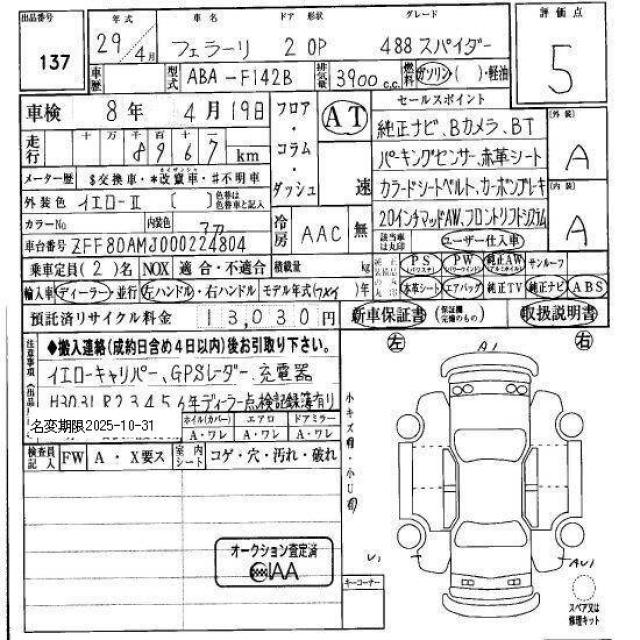 出品番号 年式 車名 ドア 形状 グレード 評価点
137 29年4月 フェラーリ 2 OP 488 スパイダー 5
車歴 型式 ABA-F142B 排気量 3900c.c. 燃料 ガソリン( )・軽油
車検 8年4月19日 フロア・コラム・ダッシュ AT 速 セールスポイント
走行 十万千百十 8967km 純正ナビ、Bカメラ、BT
パーキングセンサー、赤革シート
メーター歴 $交換車・*改竄車・#不明車 カラードシートベルト、カーボンブレーキ
外装色 イエロ-II [ ] 色替は色替車と記入 20インチマッドAW、フロントリフトシステム
[外装] A
[内装] A
カラーNo 内装色 アカ 冷房 AAC 無 該当車は丸印 ユーザー仕入車
車台番号 ZFF80AMJ000224804
乗車定員(2)名 NOX 適合・不適合 積載量 kg PS(パワステ) PW(パワーウインド) 純正AW(アルミホイル) サンルーフ
輸入車 ディーラー・並行 左ハンドル・右ハンドル モデル年式( )年 本革シート エアバッグ 純正TV 純正ナビ ABS
預託済リサイクル料金 13,030円 新車保証書 (保証欄完備のもの) 取扱説明書
左 右
注意事項
◆搬入連絡(成約日含め4日以内)後お引取り下さい。
イエローキャリパー、GPSレーダー、充電器
H30 31 R2 3 4 5 6年ディーラー点検記録簿有り
名変期限2025-10-31
ホイル(カバー) エアロ ドアミラー
A・ワレ A・ワレ A・ワレ
検査員記入 FW A・X要ス 室内シート コゲ・穴・汚れ・破れ
小キズ有・小U有
A1
U1
AU1
オークション査定済
CIAA
キーコーナー
スペア又は修理キット